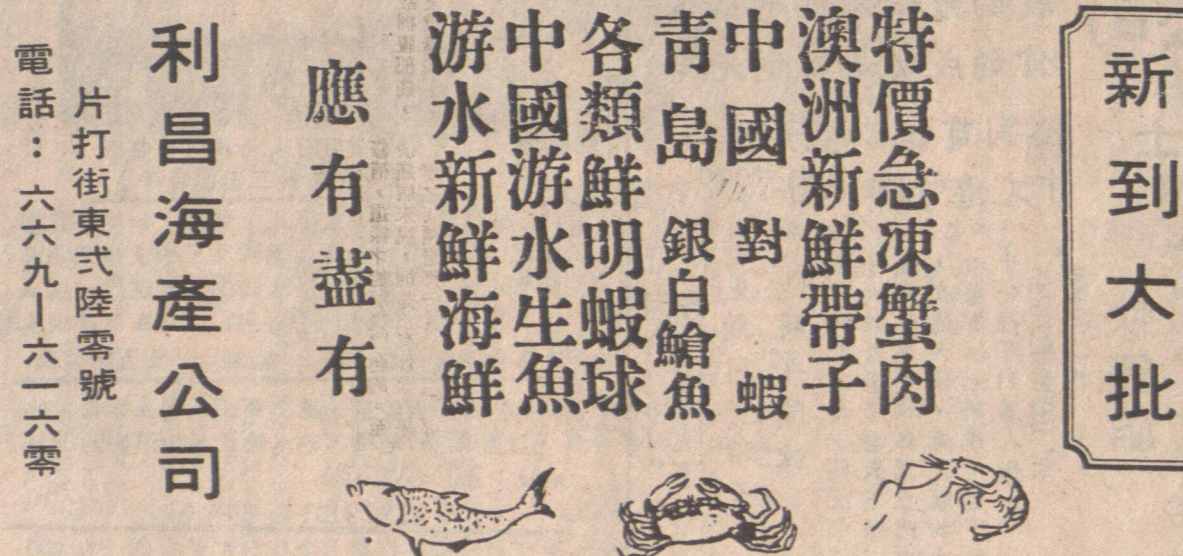 新到大批
特價急凍蟹肉
澳洲新鮮帶子
中國對蝦
青島銀白鱠魚
各類鮮明蝦球
中國游水生魚
游水新鮮海鮮
應有盡有
利昌海產公司
片打街東弍陸零號
電話：六六九—六一六零